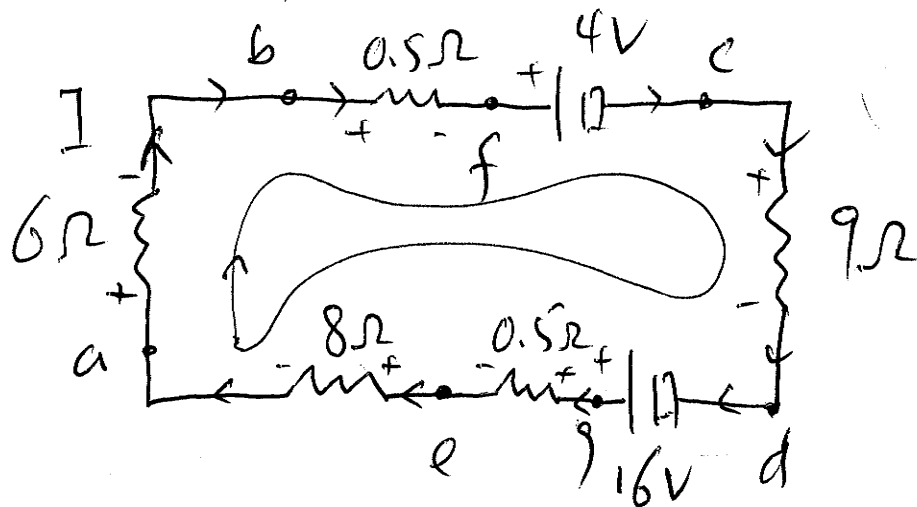 b 0.5Ω 4V c
+ - +
I
f
- +
6Ω 9Ω
+ -
a 8Ω 0.5Ω
- + - + +
e g 16V d